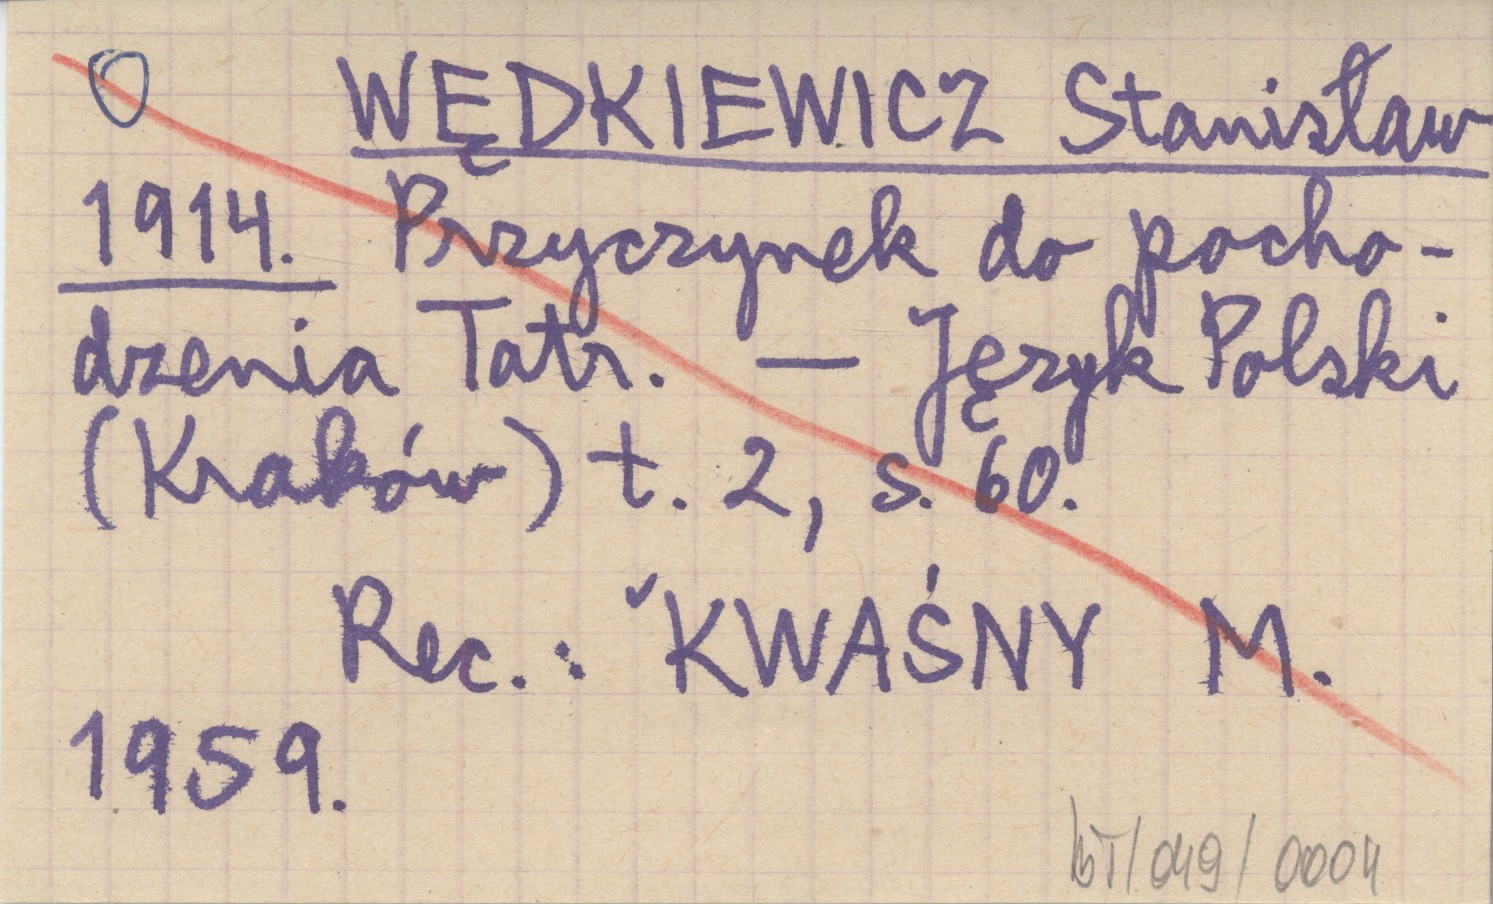 WĘDKIEWICZ Stanisław
1914. Przyczynek do pocho-
dzenia Tatr. — Język Polski
(Kraków) t. 2, s. 60.
Rec.: KWAŚNY M.
1959.
BT/049/0004